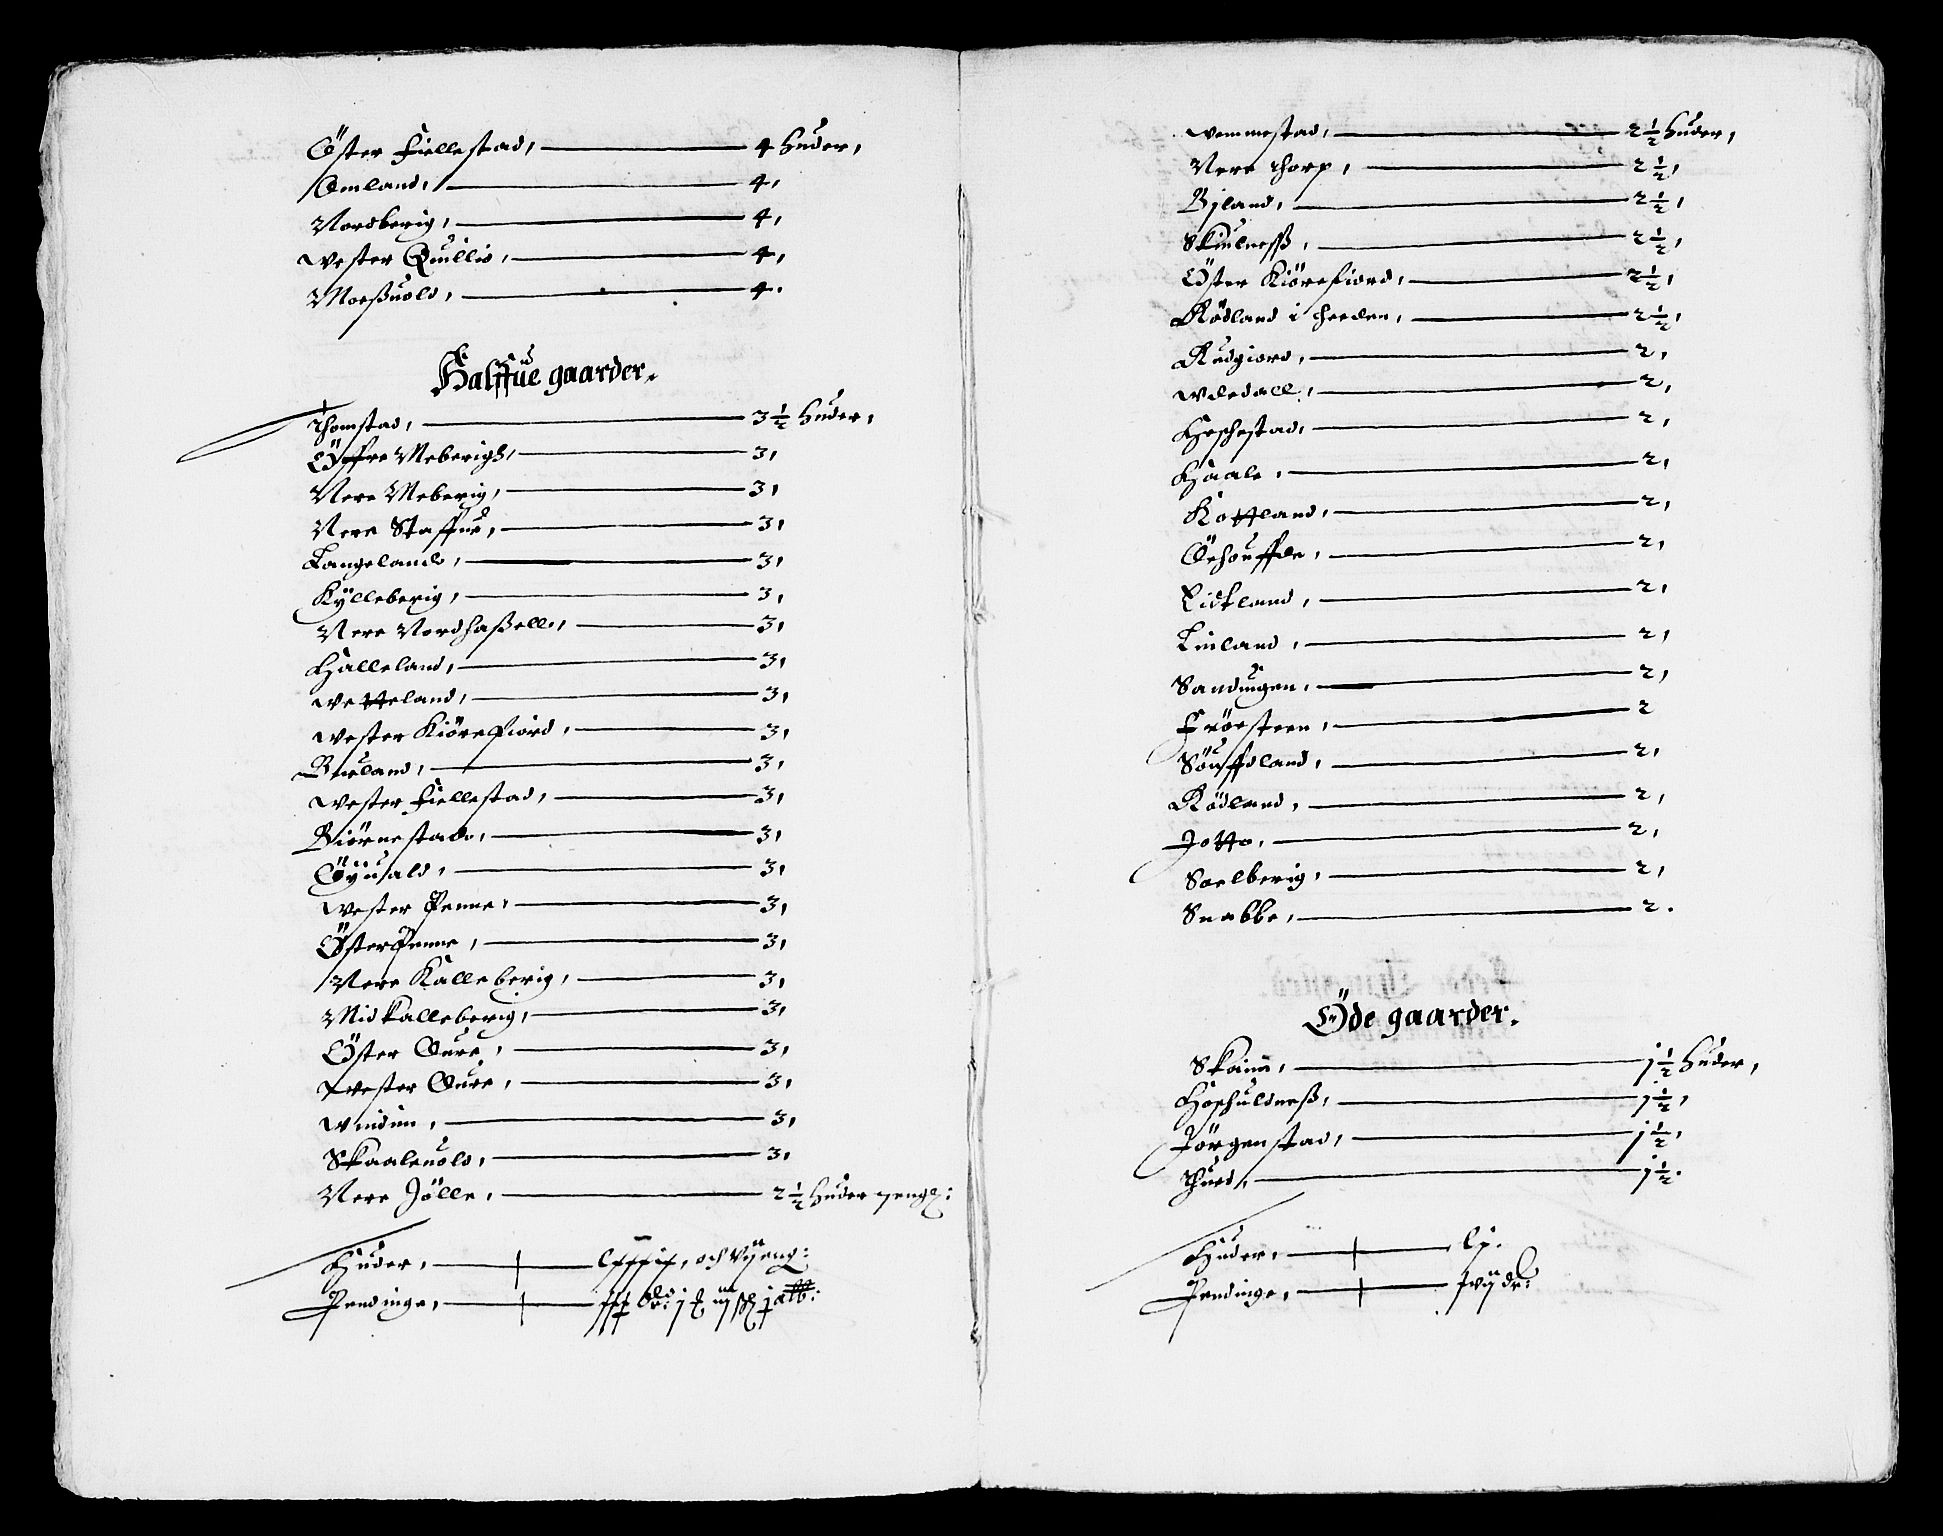 Öster Fiellestad, 4 Huder,
Omland, 4,
Nordberig, 4,
Wester Quillio, 4,
Moeßuold, 4.
Halffue gaarder.
Thomstad, 3½ Huder,
Öffre Meberigh, 3,
Nere Meberig, 3,
Nere Staffue, 3,
Langeland, 3,
Kÿlleberig, 3,
Nere Nordhaßell, 3,
Halleland, 3,
Wetteland, 3,
Wester Kiörefiord, 3,
Buuland, 3,
Wester Fiellestad, 3,
Biörnestad, 3,
Öÿuald, 3,
Wester Penne, 3,
Öster Penne, 3,
Nere Kalleberig, 3,
Midkalleberig, 3,
Öster Oure, 3,
Wester Oure, 3,
3,
Skaaleuold, 3,
Nere Jölle, 2½ Huder
Huder,
Pendinge,
Wemmestad, 2½ Huder,
Nere Thorp, 2½,
Bjland, 2½,
Skiulneß, 2½,
Öster Kiörefiord, 2½,
Rödland i Heeden, 2½,
Rudgiord, 2,
2,
Heschestad, 2,
Haale, 2,
Kottland, 2,
Öehouffde, 2,
Lidtland, 2,
Linland, 2,
Sandugen, 2,
Fröesteen, 2
Söuffdland, 2,
Rödland, 2,
Jotto, 2,
Soelberig, 2,
Snabbe, 2.
Öde gaarder.
1½ Huder,
Hoschuldneß, 1½,
Jörgenstad, 1½,
Thued, 1½.
Huder,
Pendinge,